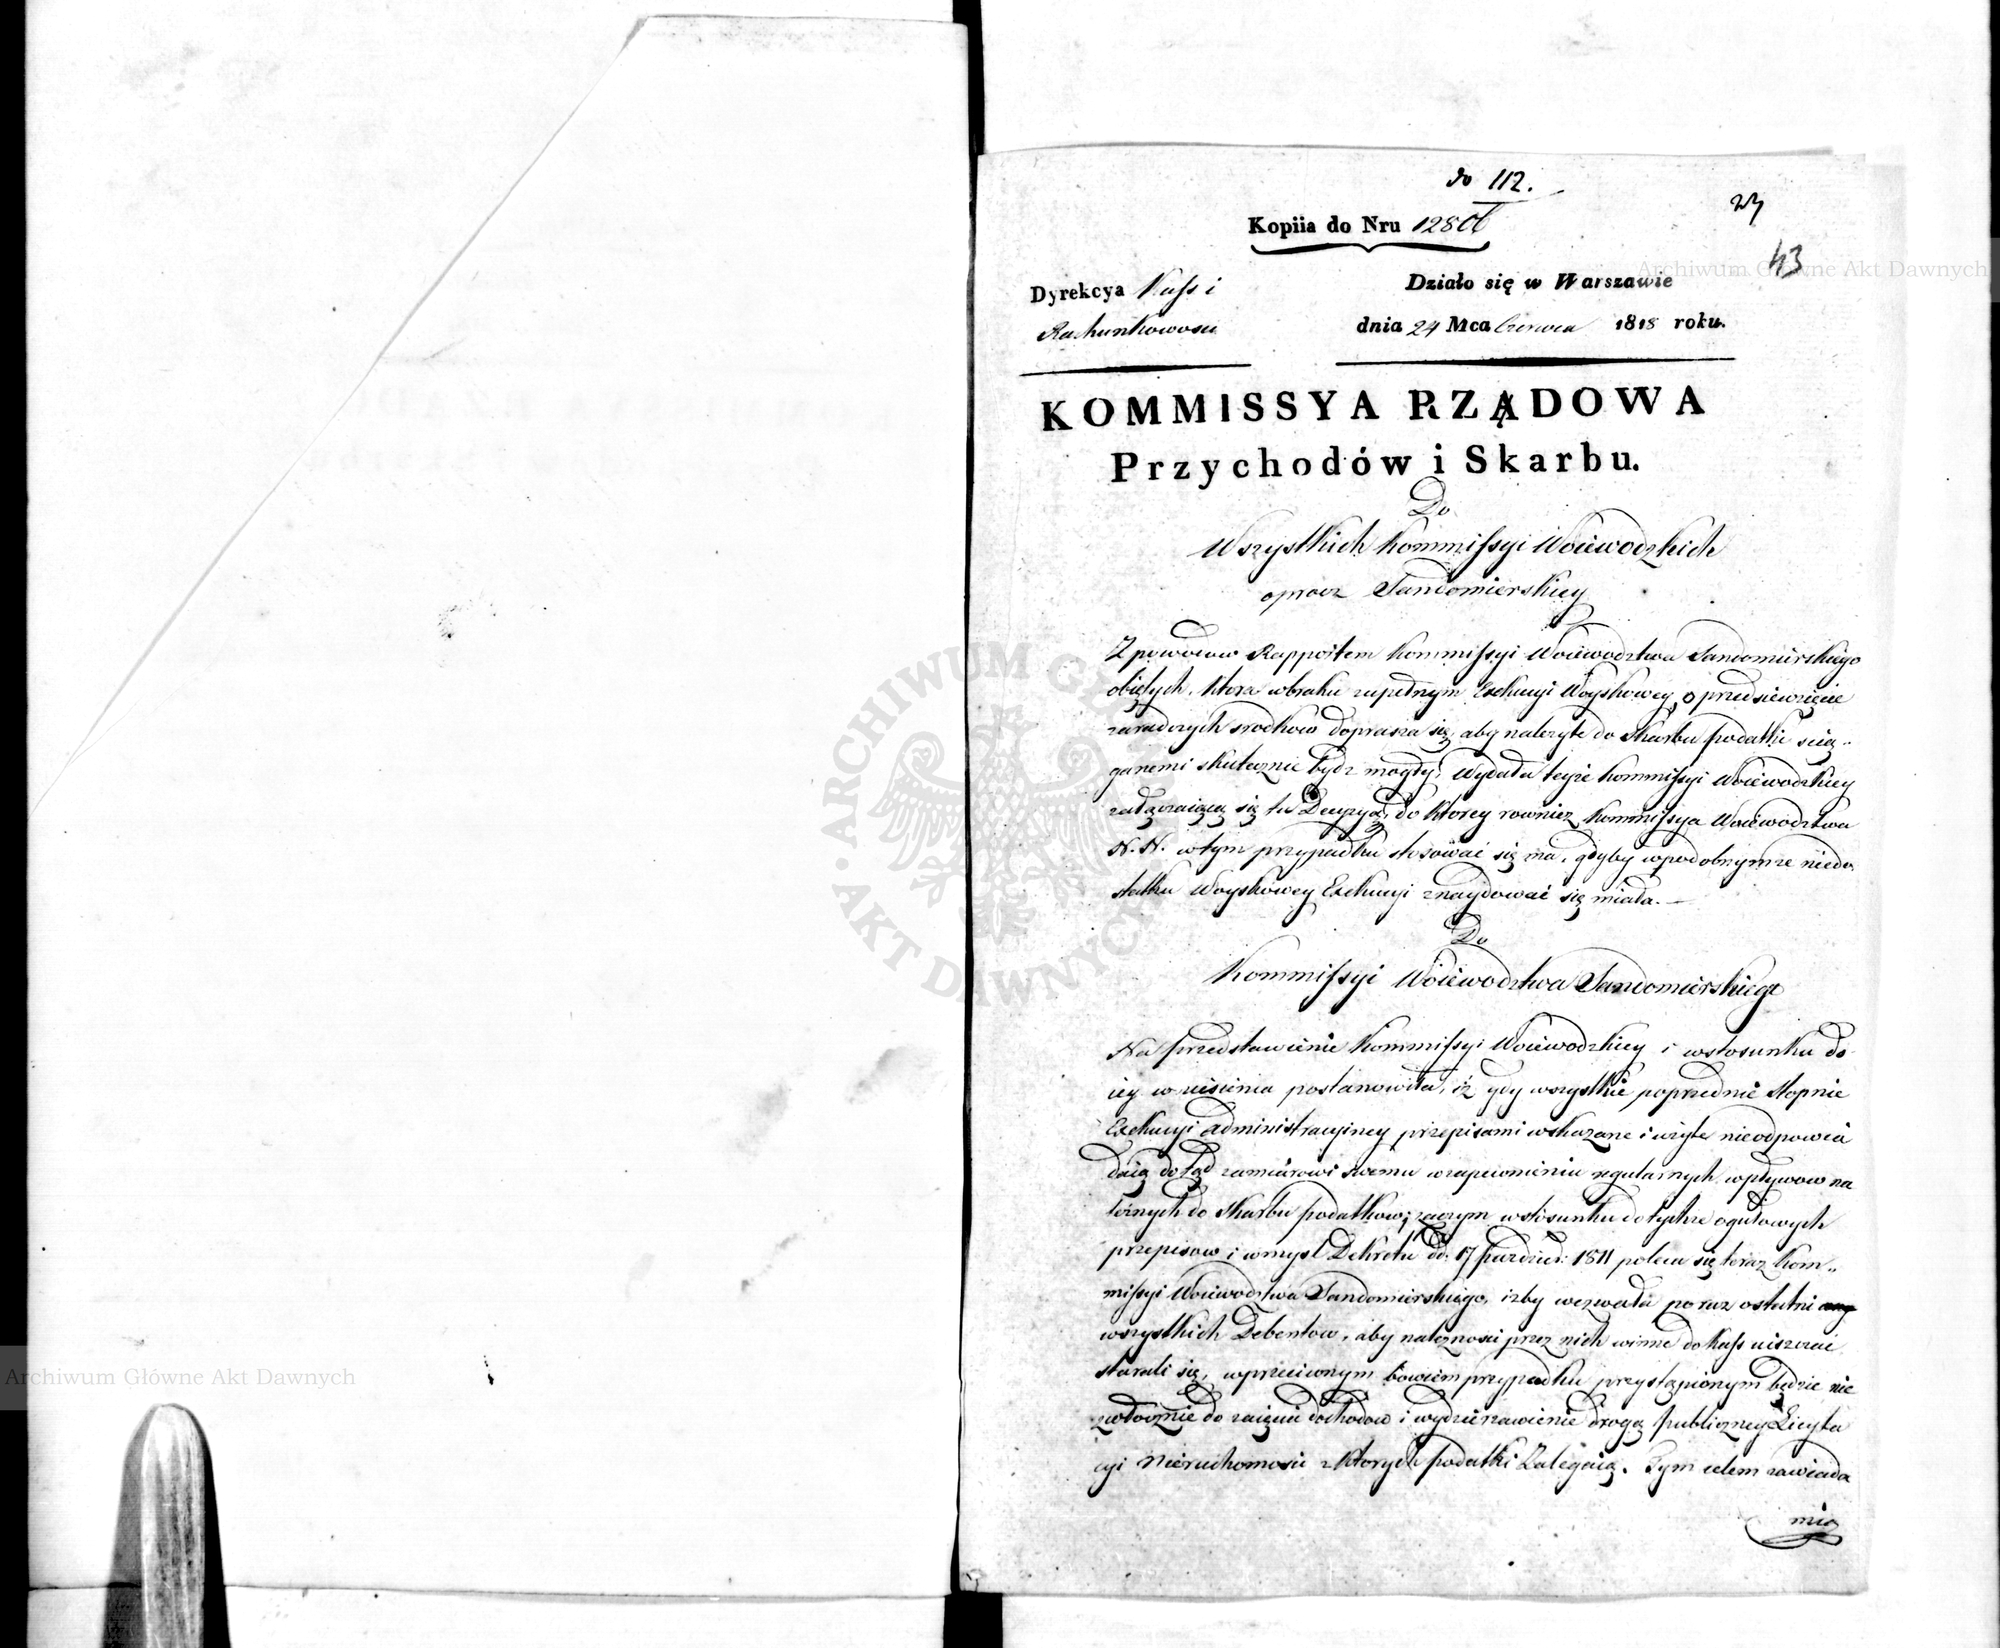 do 112.
Kopiia do Nru
27
43
Dyrekcya Kass i
Rachunkowości
Działo się w Warszawie
dnia 24 Mca Czerwca 1818 roku.
KOMMISSYA RZĄDOWA
Przychodów i Skarbu.
Do
Wszystkich Kommissyi Woiewodzkich
oprocz Sandomierskiey
Z powodow Rapportem Kommissyi Woiewodztwa Sandomierskiego
obiętych, ktora w braku zupełnym Exekucyi Woyskowey, o przedsiewzięcie
zaradczych srodkow doprasza się, aby należyte do Skarbu podatki scią„
ganemi skutecznie bydz mogły; Wydała teyże Kommissyi Woiewodzkiey
załączaiącą się tu Decyzyą, do ktorey rownież Kommissya Woiewodztwa
N. N. w tym przypadku stosować się ma, gdyby w podobnymże niedo
statku Woyskowey Exekucyi znaydować się miała. —
Do
Kommissyi Woiewodztwa Sandomierskiego
Na przedstawienie Kommissyi Woiewodzkiey i w stosunku do
iey wniesienia postanowiła, iż gdy wszystkie poprzednie stopnie
Exekucyi administracyiney przepisami wskazane i użyte nieodpowia
daią dotąd zamiarowi swemu w zapewnieniu regularnych wpływow na
leżnych do Skarbu podatkow; zaczym w stosunku do tychże ogułowych
przepisow i w mysl Dekretu dd: 17 Paździer: 1811 poleca się teraz Kom„
missyi Woiewodztwa Sandomierskiego, iżby wezwała po raz ostatni
wszystkich Debentow, aby należnosci przez nich winne do Kass uiszczać
starali się, w przeciwnym bowiem przypadku przystąpionym będzie nie
zwłocznie do zaięcia dochodow i wydzierzawienie drogą publiczney Licyta
cyi Nieruchomosci z ktorych podatki Zalegaią. Tym celem zawiada
mia
Archiwum Główne Akt Dawnych
Archiwum Główne Akt Dawnych